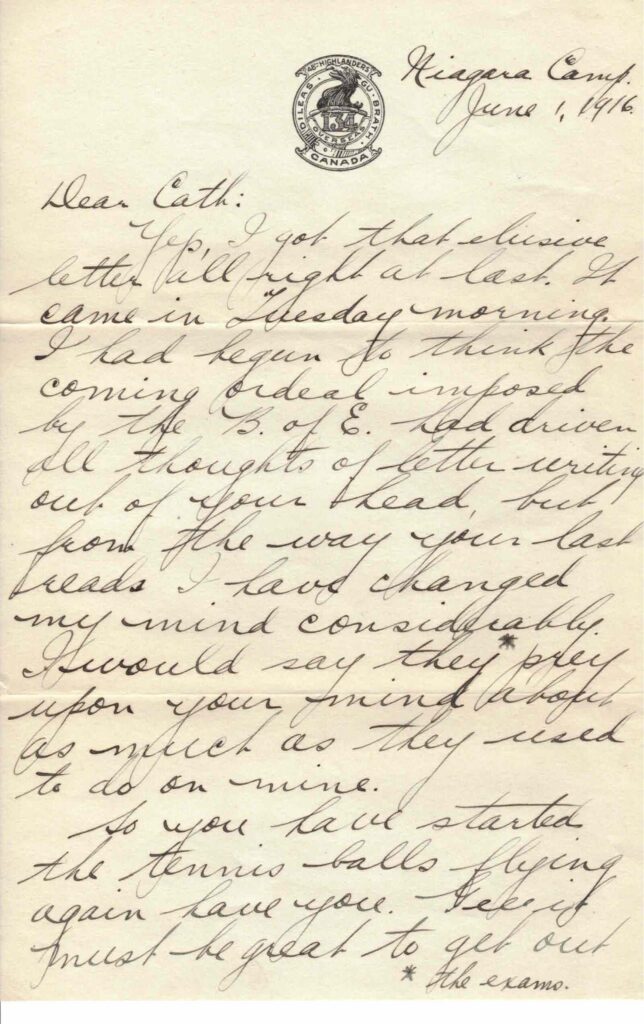 48TH HIGHLANDERS
DILEAS GU BRATH
134
OVERSEAS
CANADA
Niagara Camp.
June 1, 1916.
Dear Cath:
Yep, I got that elusive
letter all right at last. It
came in Tuesday morning.
I had begun to think the
coming ordeal imposed
by the B. of E. had driven
all thoughts of letter writing
out of your head, but
from the way your last
reads I have changed
my mind considerably.
I would say they* prey
upon your mind about
as much as they used
to do on mine.
So you have started
the tennis balls flying
again have you. Gee it
must be great to get out
* the exams.